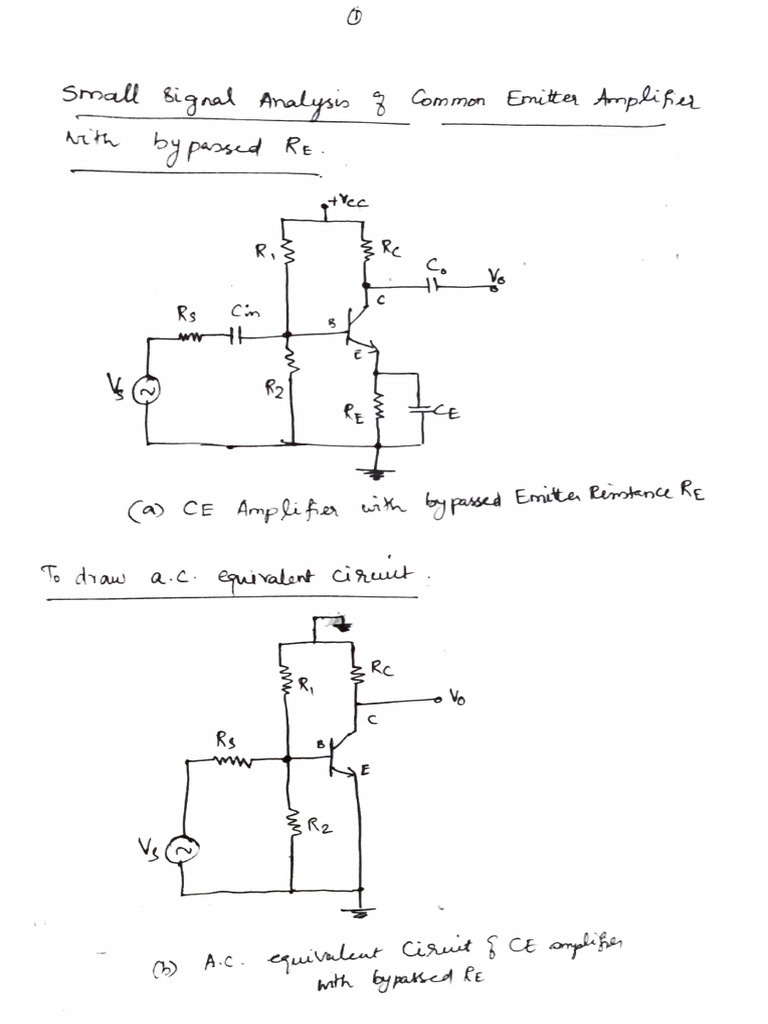 1
Small Signal Analysis of Common Emitter Amplifier
with bypassed RE.
+VCC
R1
RC
Co
Vo
C
Rs
Cin
B
E
Vs
R2
RE
CE
(a) CE Amplifier with bypassed Emitter Resistance RE
To draw a.c. equivalent circuit.
RC
R1
Vo
C
Rs
B
E
R2
Vs
(b) A.C. equivalent Circuit of CE amplifier
with bypassed RE